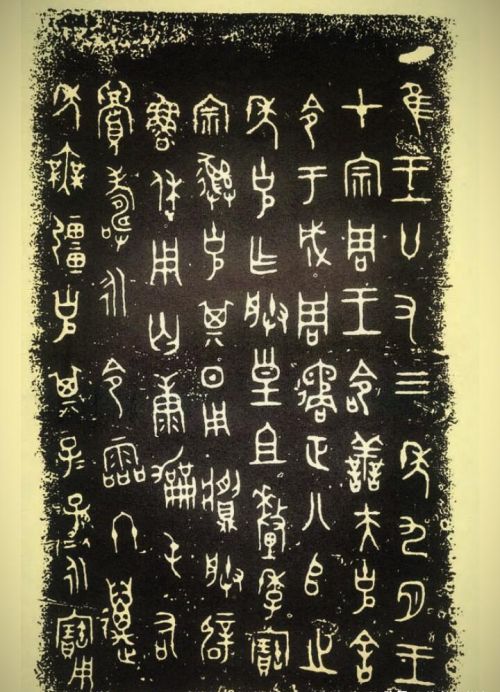 隹王廿又三年九月王
才宗周王命善夫克舍
令于成周遹正八𠂤之
年克乍朕皇且釐季寶
宗彝克其日用朕辟
魯休用匄康屯右
眉壽永令霝冬萬
年無疆克其子＝孫＝永寶用